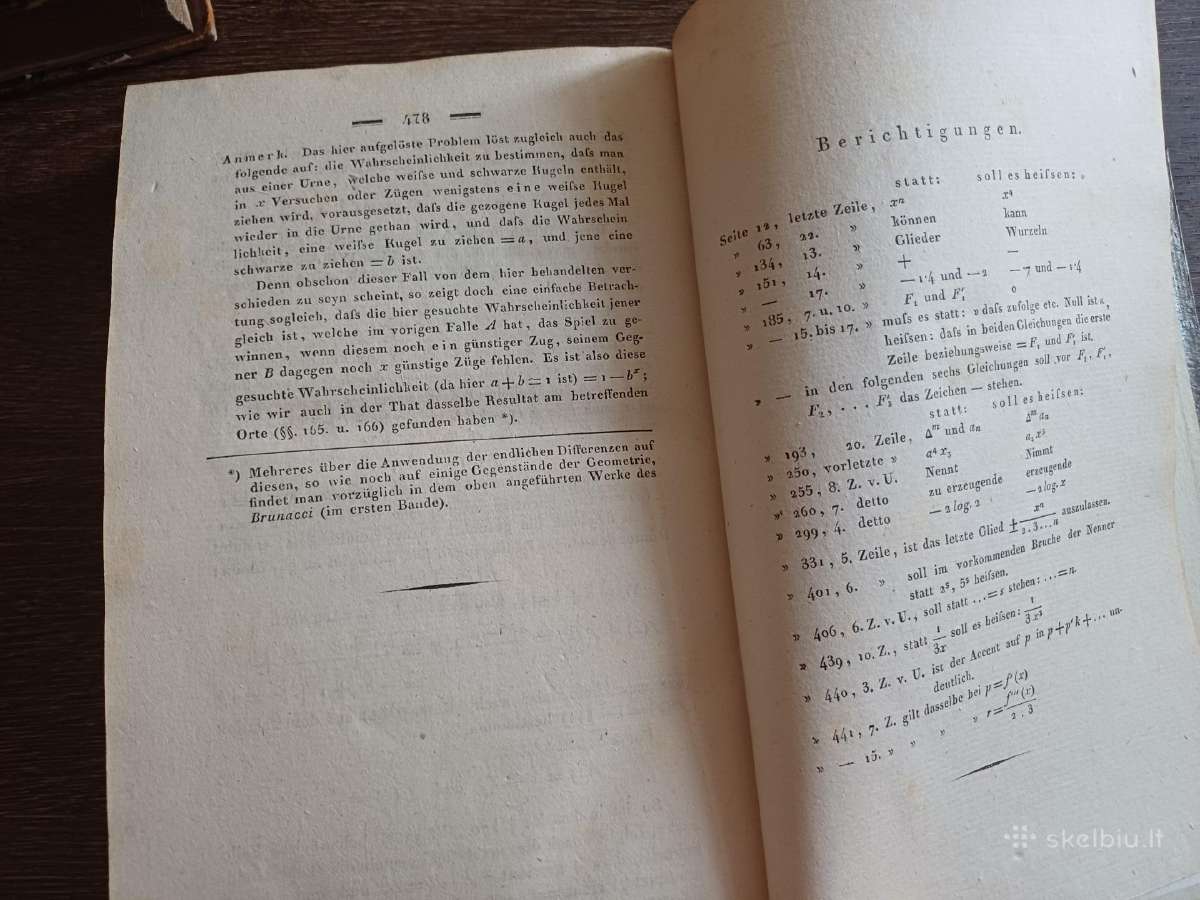 — 478 —
Anmerk. Das hier aufgelöste Problem löst zugleich auch das
folgende auf: die Wahrscheinlichkeit zu bestimmen, daſs man
aus einer Urne, welche weiſse und schwarze Kugeln enthält,
in x Versuchen oder Zügen wenigstens eine weiſse Kugel
ziehen wird, vorausgesetzt, daſs die gezogene Kugel jedes Mal
wieder in die Urne gethan wird, und daſs die Wahrschein
lichkeit, eine weiſse Kugel zu ziehen = a, und jene eine
schwarze zu ziehen = b ist.
Denn obschon dieser Fall von dem hier behandelten ver-
schieden zu seyn scheint, so zeigt doch eine einfache Betrach-
tung sogleich, daſs die hier gesuchte Wahrscheinlichkeit jener
gleich ist, welche im vorigen Falle A hat, das Spiel zu ge-
winnen, wenn diesem noch ein günstiger Zug, seinem Geg-
ner B dagegen noch x günstige Züge fehlen. Es ist also diese
gesuchte Wahrscheinlichkeit (da hier a + b = 1 ist) = 1 — bˣ;
wie wir auch in der That dasselbe Resultat am betreffenden
Orte (§§. 165. u. 166) gefunden haben *).
*) Mehreres über die Anwendung der endlichen Differenzen auf
diesen, so wie noch auf einige Gegenstände der Geometrie,
findet man vorzüglich in dem oben angeführten Werke des
Brunacci (im ersten Bande).
Berichtigungen.
statt: soll es heiſsen:
Seite 12, letzte Zeile, xⁿ x⁴
» 63, 22. » können kann
» 134, 13. » Glieder Wurzeln
» 151, 14. » + —
» — 17. » —1·4 und —2 —7 und —1·4
» 185, 7. u. 10. » F₁ und F′₁ 0
» — 15. bis 17. » muſs es statt: » daſs zufolge etc. Null ist«,
heiſsen: daſs in beiden Gleichungen die erste
Zeile beziehungsweise = F₁ und F′₁ ist.
» — in den folgenden sechs Gleichungen soll vor F₁, F′₁,
F₂, . . . F′₃ das Zeichen — stehen.
statt: soll es heiſsen:
» 193, 20. Zeile, Δᵐ und aₙ Δᵐ aₙ
» 250, vorletzte » a⁴ x₃ a₄ x³
» 255, 8. Z. v. U. Nennt Nimmt
» 260, 7. detto zu erzeugende erzeugende
» 299, 4. detto — 2 log. 2 — 2 log. x
» 331, 5. Zeile, ist das letzte Glied ± xⁿ / 2.3...n auszulassen.
» 401, 6. » soll im vorkommenden Bruche der Nenner
statt 2⁵, 5⁵ heiſsen.
» 406, 6. Z. v. U., soll statt ... = s stehen: ... = n.
» 439, 10. Z., statt 1/3x soll es heiſsen: 1/3x³
» 440, 3. Z. v. U. ist der Accent auf p in p + p′k + ... un-
deutlich.
» 441, 7. Z. gilt dasselbe bei p = f′(x)
» — 15. » » » » r = f‴(x) / 2.3
skelbiu.lt